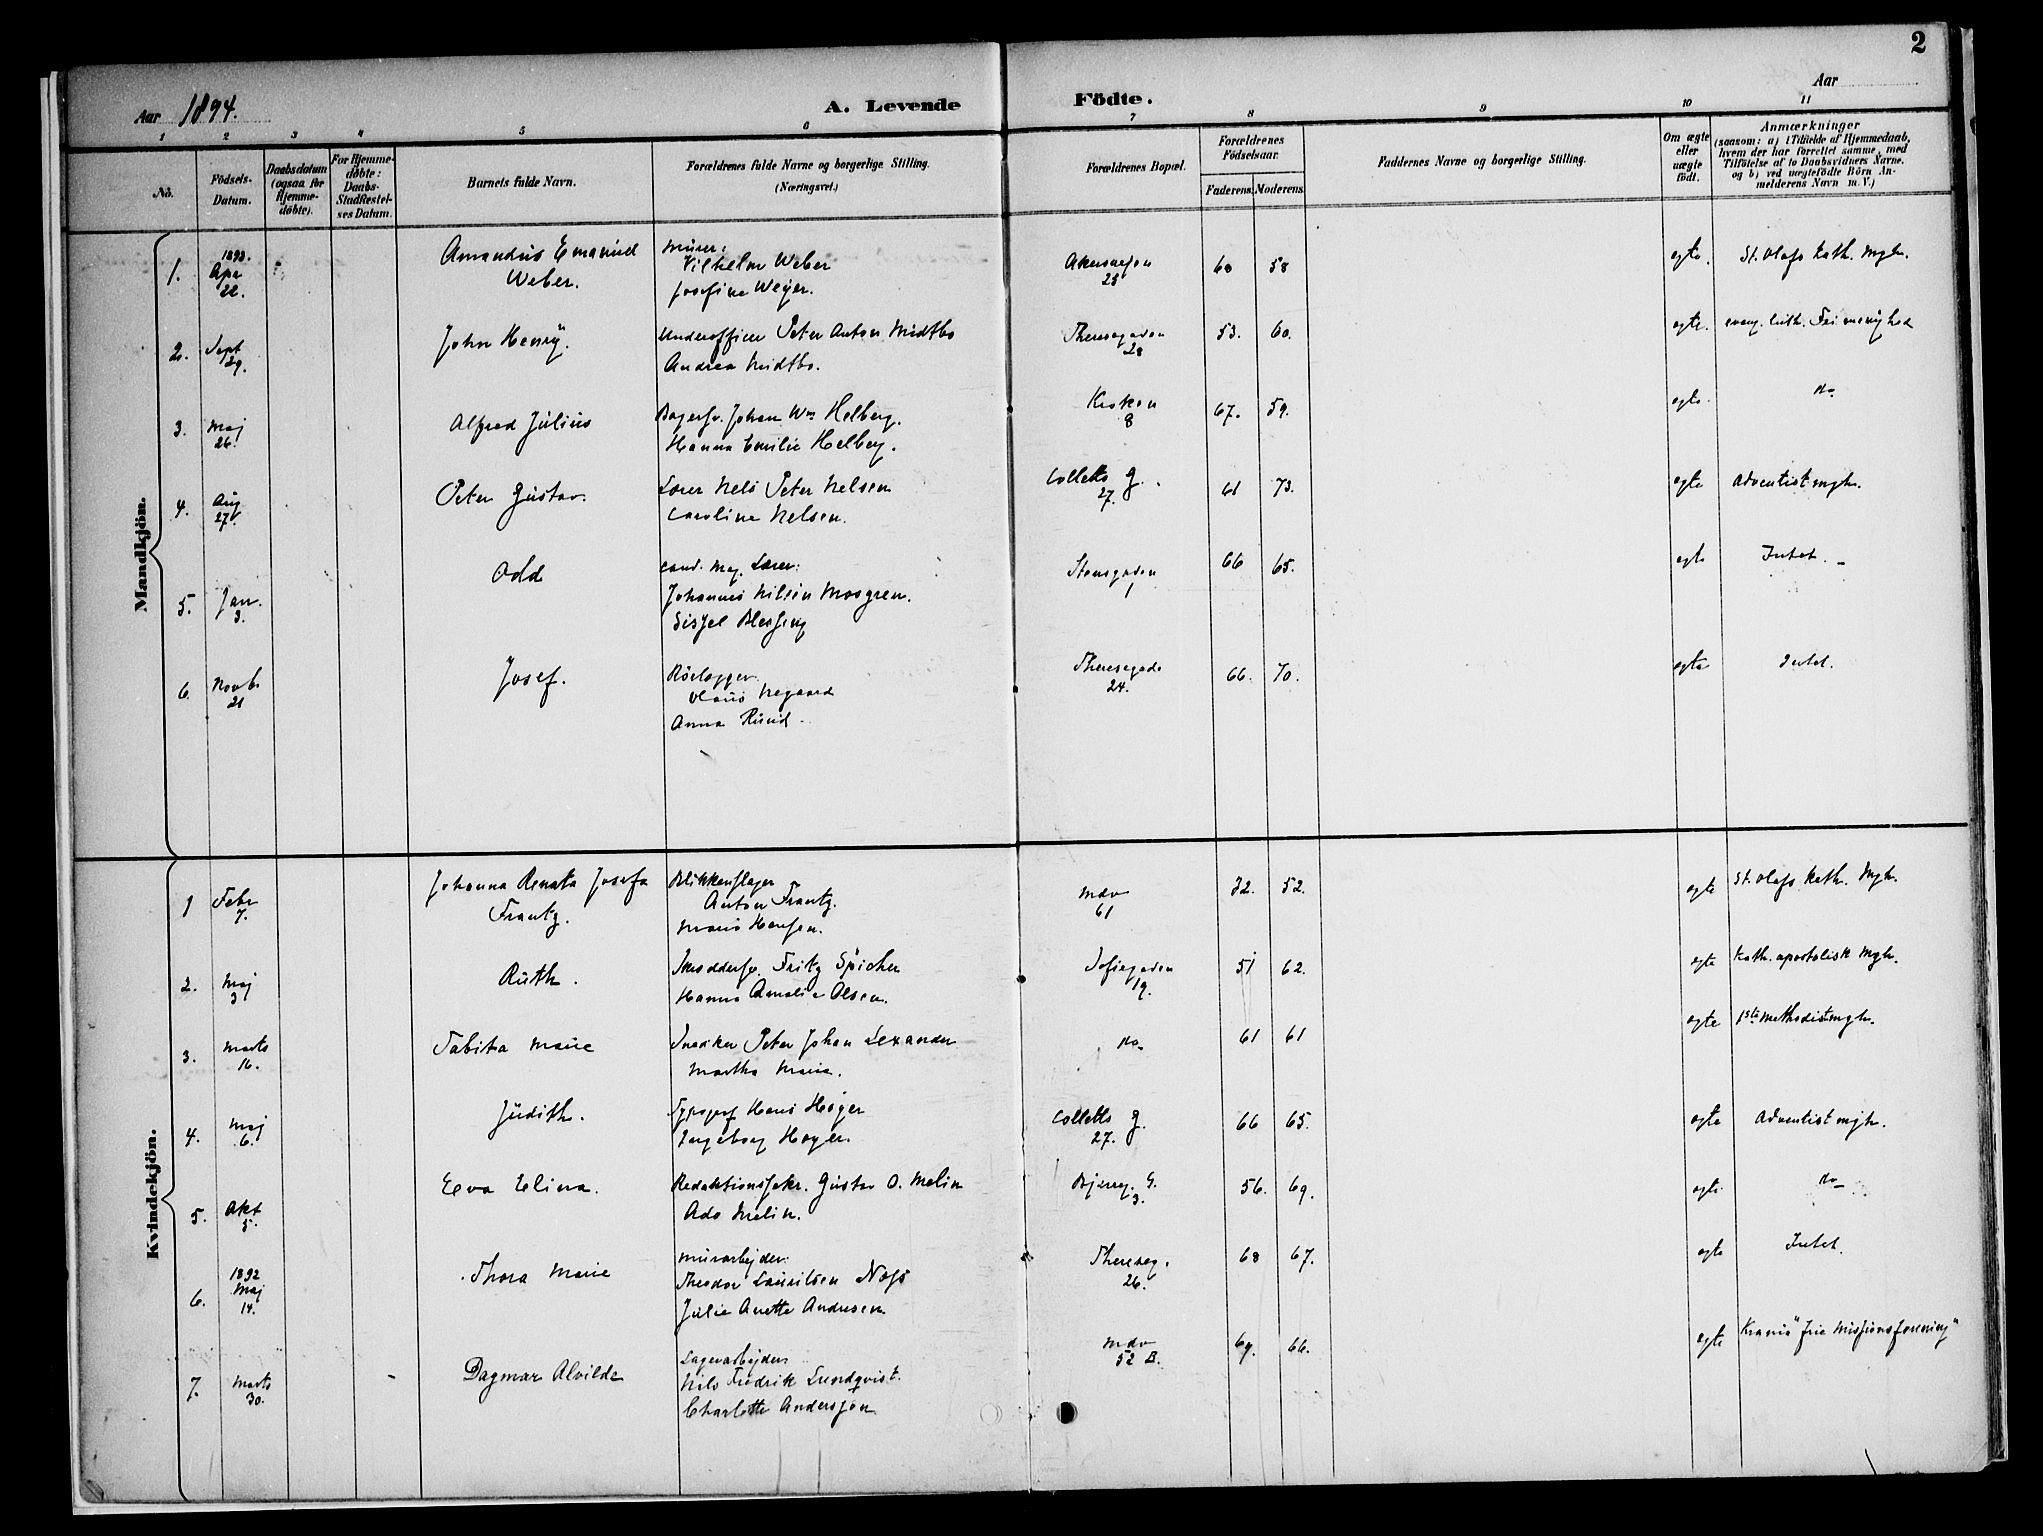 2
Aar 1894.
A. Levende Födte.
Aar
1 2 3 4 5 6 7 8 9 10 11
Nō.
Födsels-Datum.
Daabsdatum (ogsaa for Hjemme-döbte).
For Hjemme-döbte: Daabs-Stadfæstel-ses Datum.
Barnets fulde Navn.
Forældrenes fulde Navne og borgerlige Stilling. (Næringsvei.)
Forældrenes Bopæl.
Forældrenes Födselsaar.
Faderens. Moderens.
Faddernes Navne og borgerlige Stilling.
Om ægte eller uægte födt.
Anmærkninger
(saasom: a) i Tilfælde af Hjemmedaab, hvem der har forrettet samme, med Tilföielse af to Daabsvidners Navne. og b) ved uægtefödte Börn An-melderens Navn m. V.)
Mandkjön.
1. 1893. Apr 22. Amandus Emanuel Weber. Murer: Vilhelm Weber Josefine Weyer. Akersveien 25 60 58 egte. St. Olafs kath. Mgh.
2. Sept 29. John Henry. Underofficer Peter Anton Midtbo Andrea Midtbo. Theresegaden 28 53. 60. egte. evang. luth. Frimenighed
3. Maj 26. Alfred Julius Bagersv. Johan Wm Helberg. Hanna Emilie Helberg. Kroken 8 67. 59. egte. do
4. Aug 27. Peter Gustav. Lærer Nels Peter Nelsen Caroline Nelsen. Colletts G. 27. 61 73. egte Adventistmgh.
5. Jan. 3. Odd cand. mag. Lærer: Johannes Nilsen Mosgren. Sissel Blessing Stensgaden 1 66 65. egte Intet.
6. Novb. 21 Josef. Rörlægger Olaus Negaard Anna Ruud. Theresegade 24. 66. 70. egte Intet.
Kvindekjön.
1 Febr 7. Johanna Renata Josefa Frantz. Blikkenslager Anton Frantz. Marie Hansen. Mdv 61 32. 52. egte St. Olafs kath. Mgh.
2. Maj 3 Ruth. Skreddersv. Fritz Spicher Hanna Amalie Olsen. Sofiegaden 19. 51 62. egte Kath. apostolisk Mgh.
3. Marts 16. Tabita Marie Snedker Peter Johan Lexander Martha Marie. do 61 61 egte 1ste Methodistmgh.
4. Maj 6. Judith. Hans Høyer Ingeborg Høyer. Colletts G. 27. 66 65. egte Adventistmgh.
5. Okt 5. Eva Elina. Redaktionssekr. Gustav O. Melin Ada Melin. Bjerreg. G. 3. 56. 69. egte do
6. 1892 Maj 14. Thora Marie Murarbejder. Theodor Lauritsen Næss Julie Anette Andresen Thereseg. 26. 68 67. egte Intet.
7. Marts 30. Dagmar Alvilde Lagerarbejder Nils Fredrik Lundqvist. Charlotte Andersson Mdv 52 B. 69. 66. egte Krania "frie Missionsforening"